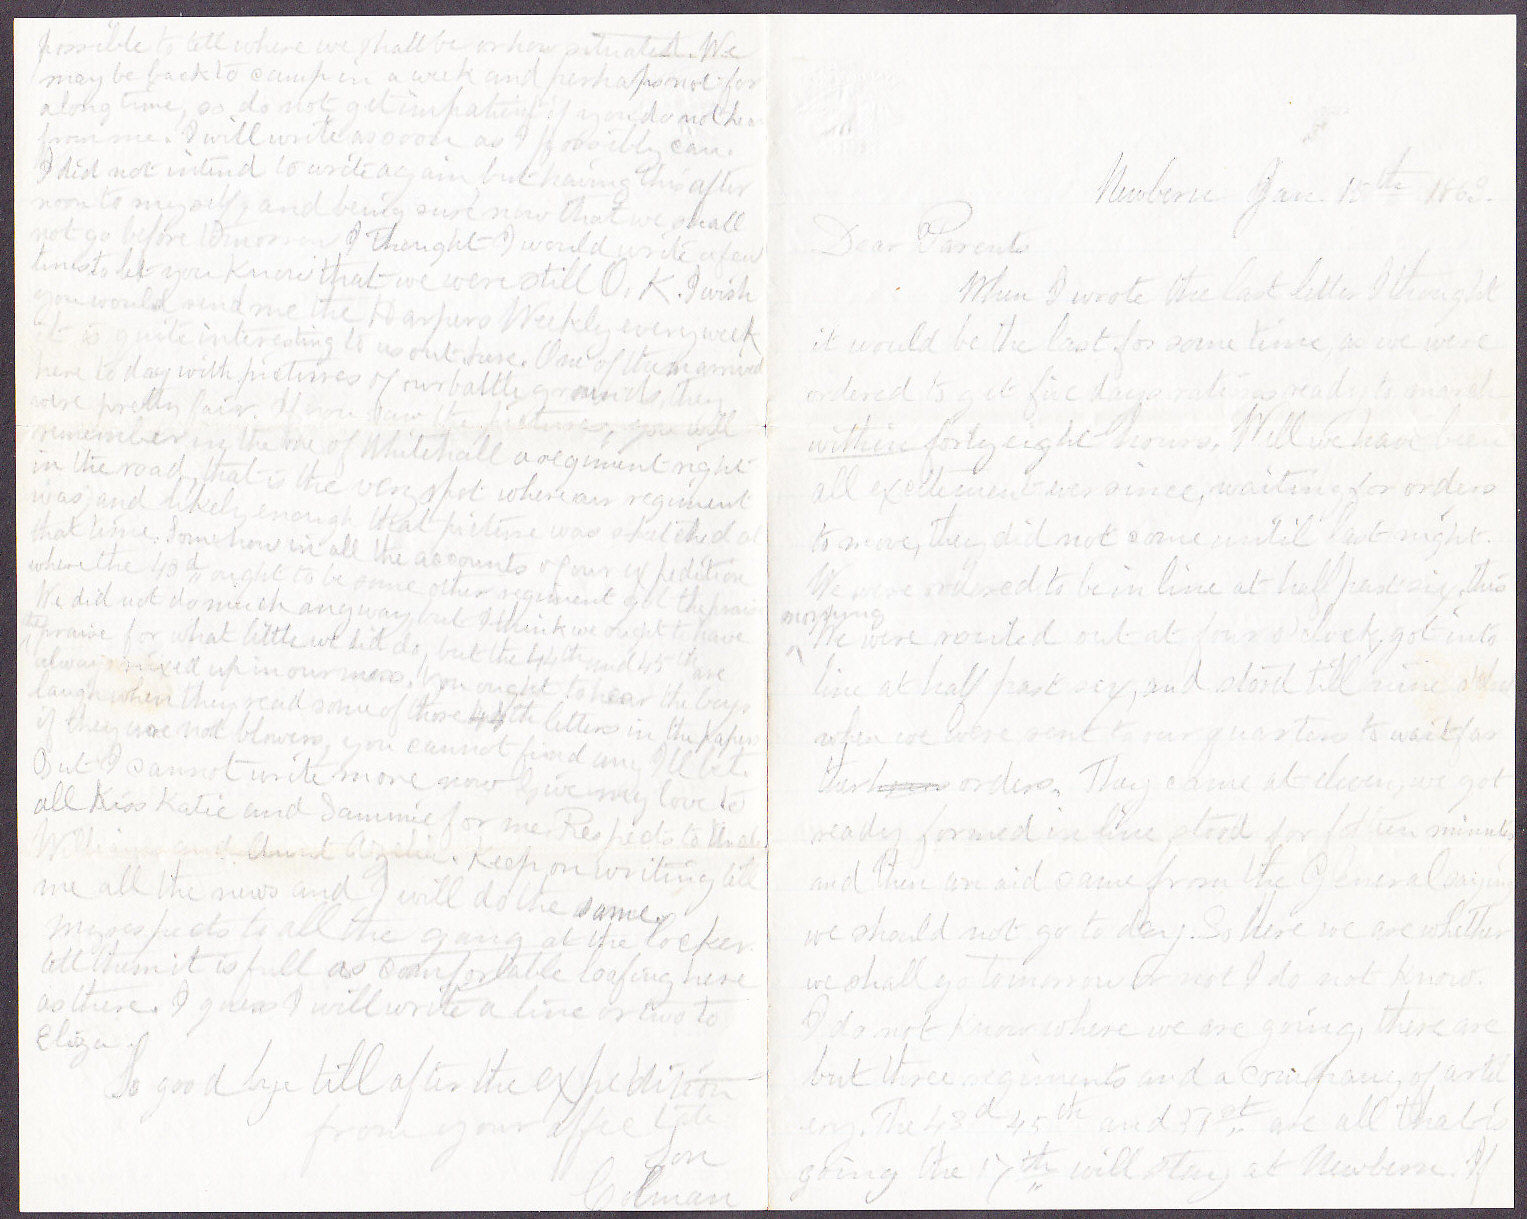 Newberne Jan. 15th 1863.
Dear Parents
When I wrote the last letter I thought
it would be the last for some time, as we were
ordered to get five days rations ready to march
within forty eight hours. Well we have been
all excitement ever since, waiting for orders
to move, they did not come until last night.
We were ordered to be in line at half past six, this
morning
We were routed out at four o'clock, got into
line at half past six, and stood till nine
when we were sent to our quarters to wait fur
ther orders. They came at eleven, we got
ready formed in line, stood for fifteen minutes
and then an aid came from the General saying
we should not go to day. So here we are whether
we shall go tomorrow or not I do not know.
I do not know where we are going, there are
but three regiments and a company of artil
ery. The 43d 45th and 51st are all that is
going the 17th will stay at Newberne. If
possible to tell where we shall be or how situated. We
may be back to camp in a week and perhaps not for
a long time, so do not get impatient if you do not hear
from me. I will write as soon as I possibly can.
I did not intend to write again but having this after
noon to myself, and being sure now that we shall
not go before tomorrow I thought I would write a few
lines to let you know that we were still O. K. I wish
you would send me the Harpers Weekly every week
it is quite interesting to us out here. One of them arrived
here to day with pictures of our battle grounds, they
were pretty fair. If you saw the pictures, you will
remember in the one of Whitehall a regiment right
in the road, that is the very spot where our regiment
was, and likely enough that picture was sketched at
that time. Somehow in all the accounts of our expedition
where the 43d ought to be some other regiment got the praise
We did not do much anyway, but I think we ought to have
the praise for what little we did do, but the 44th and 45th are
always mixed up in our mess. You ought to hear the boys
laugh when they read some of those 44th letters in the papers
if they are not blowers, you cannot find any I'll bet.
But I cannot write more now Give my love to
all Kiss Katie and Sammie for me. Respects to Uncle
William and Aunt Azelia. Keep on writing tell
me all the news and I will do the same.
My respects to all the gang at the locker.
tell them it is full as comfortable loafing here
as there. I guess I will write a line or two to
Eliza.
So good bye till after the expedition
from your affec tate
Son
Colman